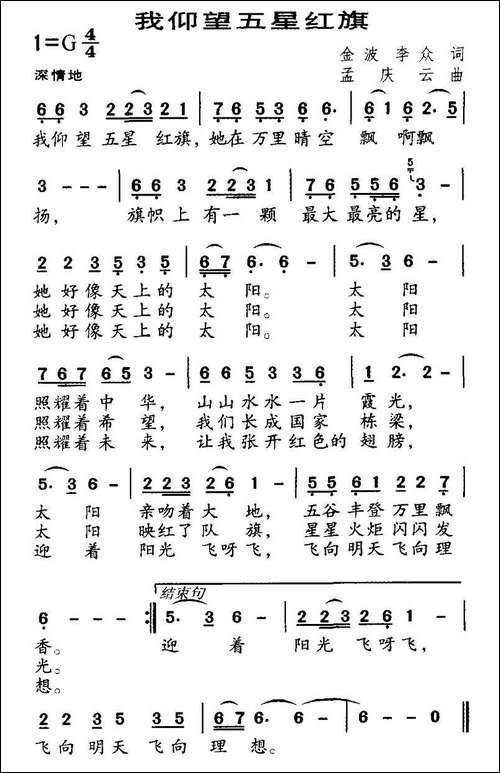 我仰望五星红旗
1=G 4/4
金波 李众 词
深情地
孟庆云 曲
6 6 3 2 2 3 2 1 | 7 6 5 3 6 6· | 6 1 6 2· 5 |
我仰望 五星 红旗,她在万里晴空 飘 啊飘
3 - - - | 6 6 3 2 2 3 1 | 7 6 5 5 6 3 - |
扬, 旗帜上 有一 颗 最大最亮的星,
2 2 3 5 3 5 | 6 7 6· 6 - | 5· 3 6 - |
她 好像天上的 太 阳。 太 阳
她 好像天上的 太 阳。 太 阳
她 好像天上的 太 阳。 太 阳
7 6 7 6 5 3 - | 6 6 5 3 3 3 6 | 1 2· 2 - |
照耀着 中 华, 山山水水一片 霞光,
照耀着 希 望, 我们长成国家 栋梁,
照耀着 未 来, 让我张开红色的 翅膀,
5· 3 6 - | 2 2 3 2 6 1 - | 3 5 6 1 2 2 7 |
太 阳 亲吻着 大 地, 五谷丰登万里飘
太 阳 映红了 队 旗, 星星火炬闪闪发
迎 着 阳光 飞呀飞, 飞向明天飞向理
结束句
6 - - - :| 5· 3 6 - | 2 2 3 2 6 1 - |
香。 迎 着 阳光 飞呀飞,
光。
想。
2 2 3 5 3 3 5 | 6 7 6· 6 - | 6 - - 0 ‖
飞向 明天 飞向 理 想。